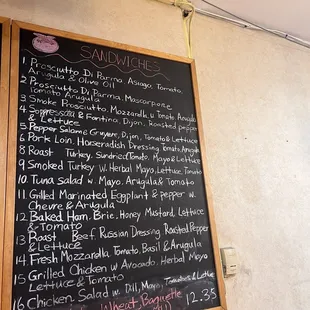 SANDWICHES
1 Prosciutto Di Parma Asiago, Tomato,
Arugula & Olive Oil
2 Prosciutto Di Parma, Mascarpone
Tomato Arugula
3 Smoke Prosciutto, Mozzarella, Tomato, Arugula
4 Soppressata & Fontina, Dijon, Roasted pepper
& Lettuce
5 Pepper Salame Gruyere, Dijon, Tomato & Lettuce
6 Pork Loin, Horseradish Dressing, Tomato, Arugula
8 Roast Turkey, Sundried Tomato, Mayo & Lettuce
9 Smoked Turkey w. Herbal Mayo, Lettuce, Tomato
10 Tuna Salad w. Mayo, Arugula & Tomato
11 Grilled Marinated Eggplant & pepper w.
Chevre & Arugula
12 Baked Ham, Brie, Honey Mustard, Lettuce
& Tomato
13 Roast Beef, Russian Dressing, Roasted Pepper
& Lettuce
14 Fresh Mozzarella, Tomato, Basil & Arugula
15 Grilled Chicken w Avocado, Herbal Mayo
Lettuce & Tomato
16 Chicken Salad w. Dill, Mayo, Tomatoes & Lettuce
Wheat, Baguette 12.35